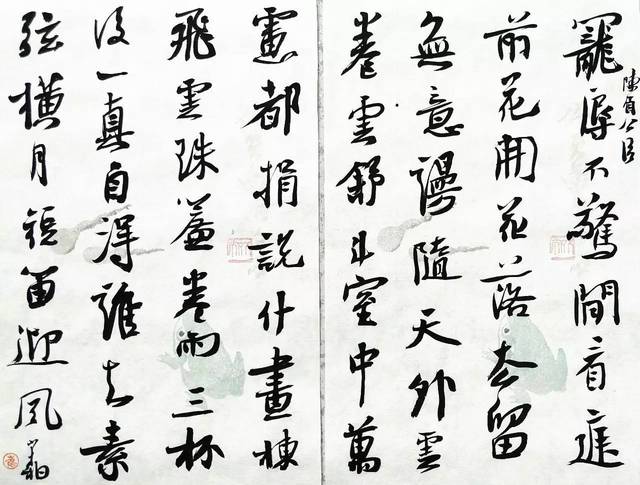 陳眉公
寵辱不驚閒看庭
前花開花落去留
無意漫隨天外雲
卷雲舒斗室中萬
慮都捐說什畫棟
飛雲珠簾卷雨三杯
後一真自得誰知素
弦橫月短笛迎風